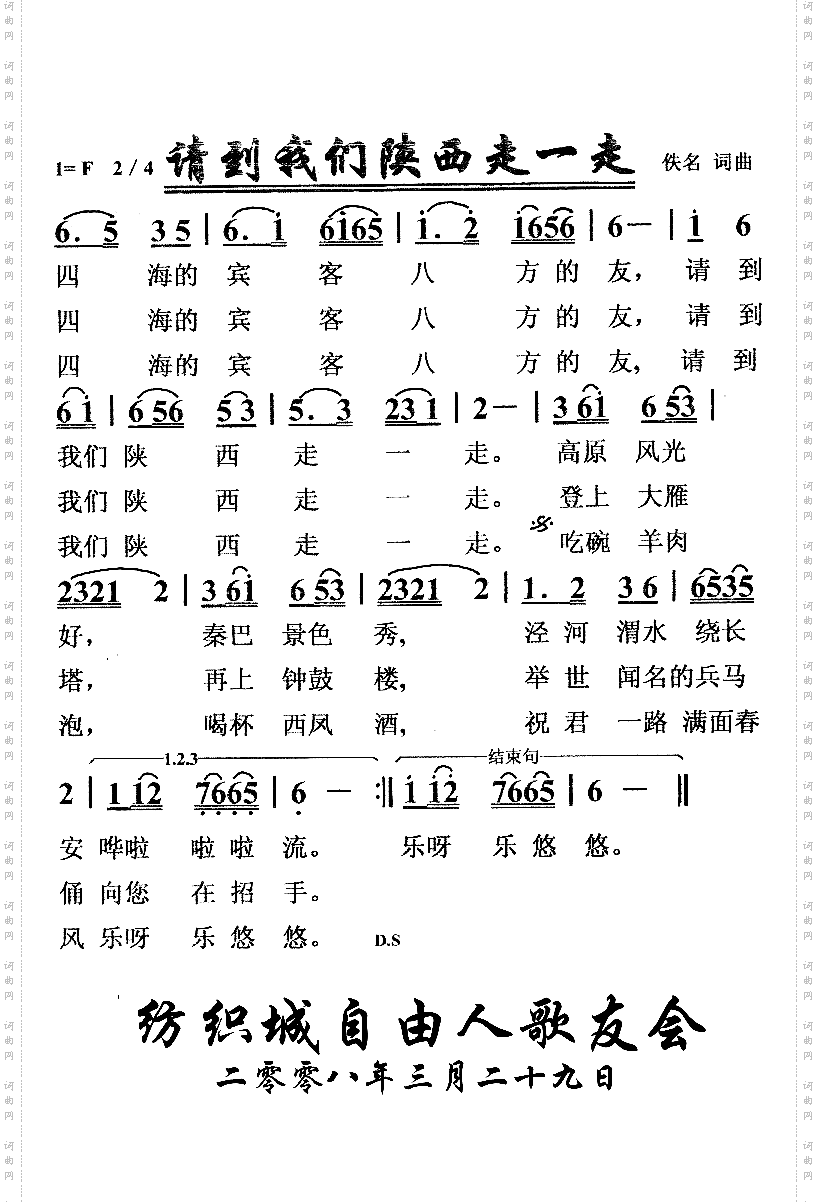 请到我们陕西走一走
1=F 2/4 佚名 词曲
6. 5 3 5 | 6. i 6i65 | i. 2 i656 | 6 — | i 6
四 海的 宾 客 八 方 的 友, 请 到
四 海的 宾 客 八 方 的 友, 请 到
四 海的 宾 客 八 方 的 友, 请 到
6 i | 6 56 5 3 | 5. 3 23 1 | 2 — | 3 6i 6 53 |
我们 陕 西 走 一 走。 高原 风光
我们 陕 西 走 一 走。 登上 大雁
我们 陕 西 走 一 走。 吃碗 羊肉
2321 2 | 3 6i 6 53 | 2321 2 | 1. 2 3 6 | 6535
好, 秦巴 景色 秀, 泾 河 渭水 绕长
塔, 再上 钟鼓 楼, 举 世 闻名的兵马
泡, 喝杯 西凤 酒, 祝 君 一路 满面春
1.2.3 结束句
2 | 1 12 7665 | 6 — :‖ i i2 7665 | 6 — ‖
安 哗啦 啦 啦 流。 乐呀 乐 悠 悠。
俑 向您 在 招 手。
风 乐呀 乐 悠 悠。 D.S
纺织城自由人歌友会
二零零八年三月二十九日
词曲网